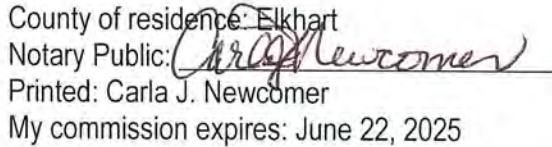 County of residence: Elkhart
Notary Public: Carla J Newcomer
Printed: Carla J. Newcomer
My commission expires: June 22, 2025